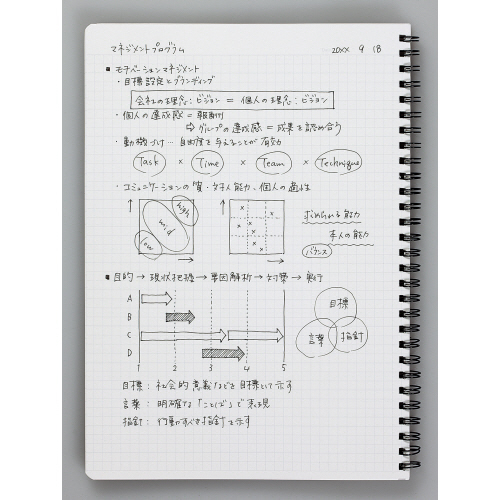 マネジメントプログラム 20XX 9 18
■ モチベーションマネジメント
・目標設定とブランディング
会社の理念:ビジョン = 個人の理念:ビジョン
・個人の達成感 = 報酬
⇨ グループの達成感 = 成果を認め合う
・動機づけ… 自由度を与えることが有効
Task × Time × Team × Technique
・コミュニケーションの質・対人能力、個人の適性
high
mid
low
× × × × × ×
求められる能力
本人の能力
バランス
■ 目的 → 現状把握 → 要因解析 → 対策 → 実行
A
B
C
D
1 2 3 4 5
目標
言葉 指針
目標: 社会的意義などを目標として示す
言葉: 明確な「ことば」で表現
指針: 行動すべき指針を示す